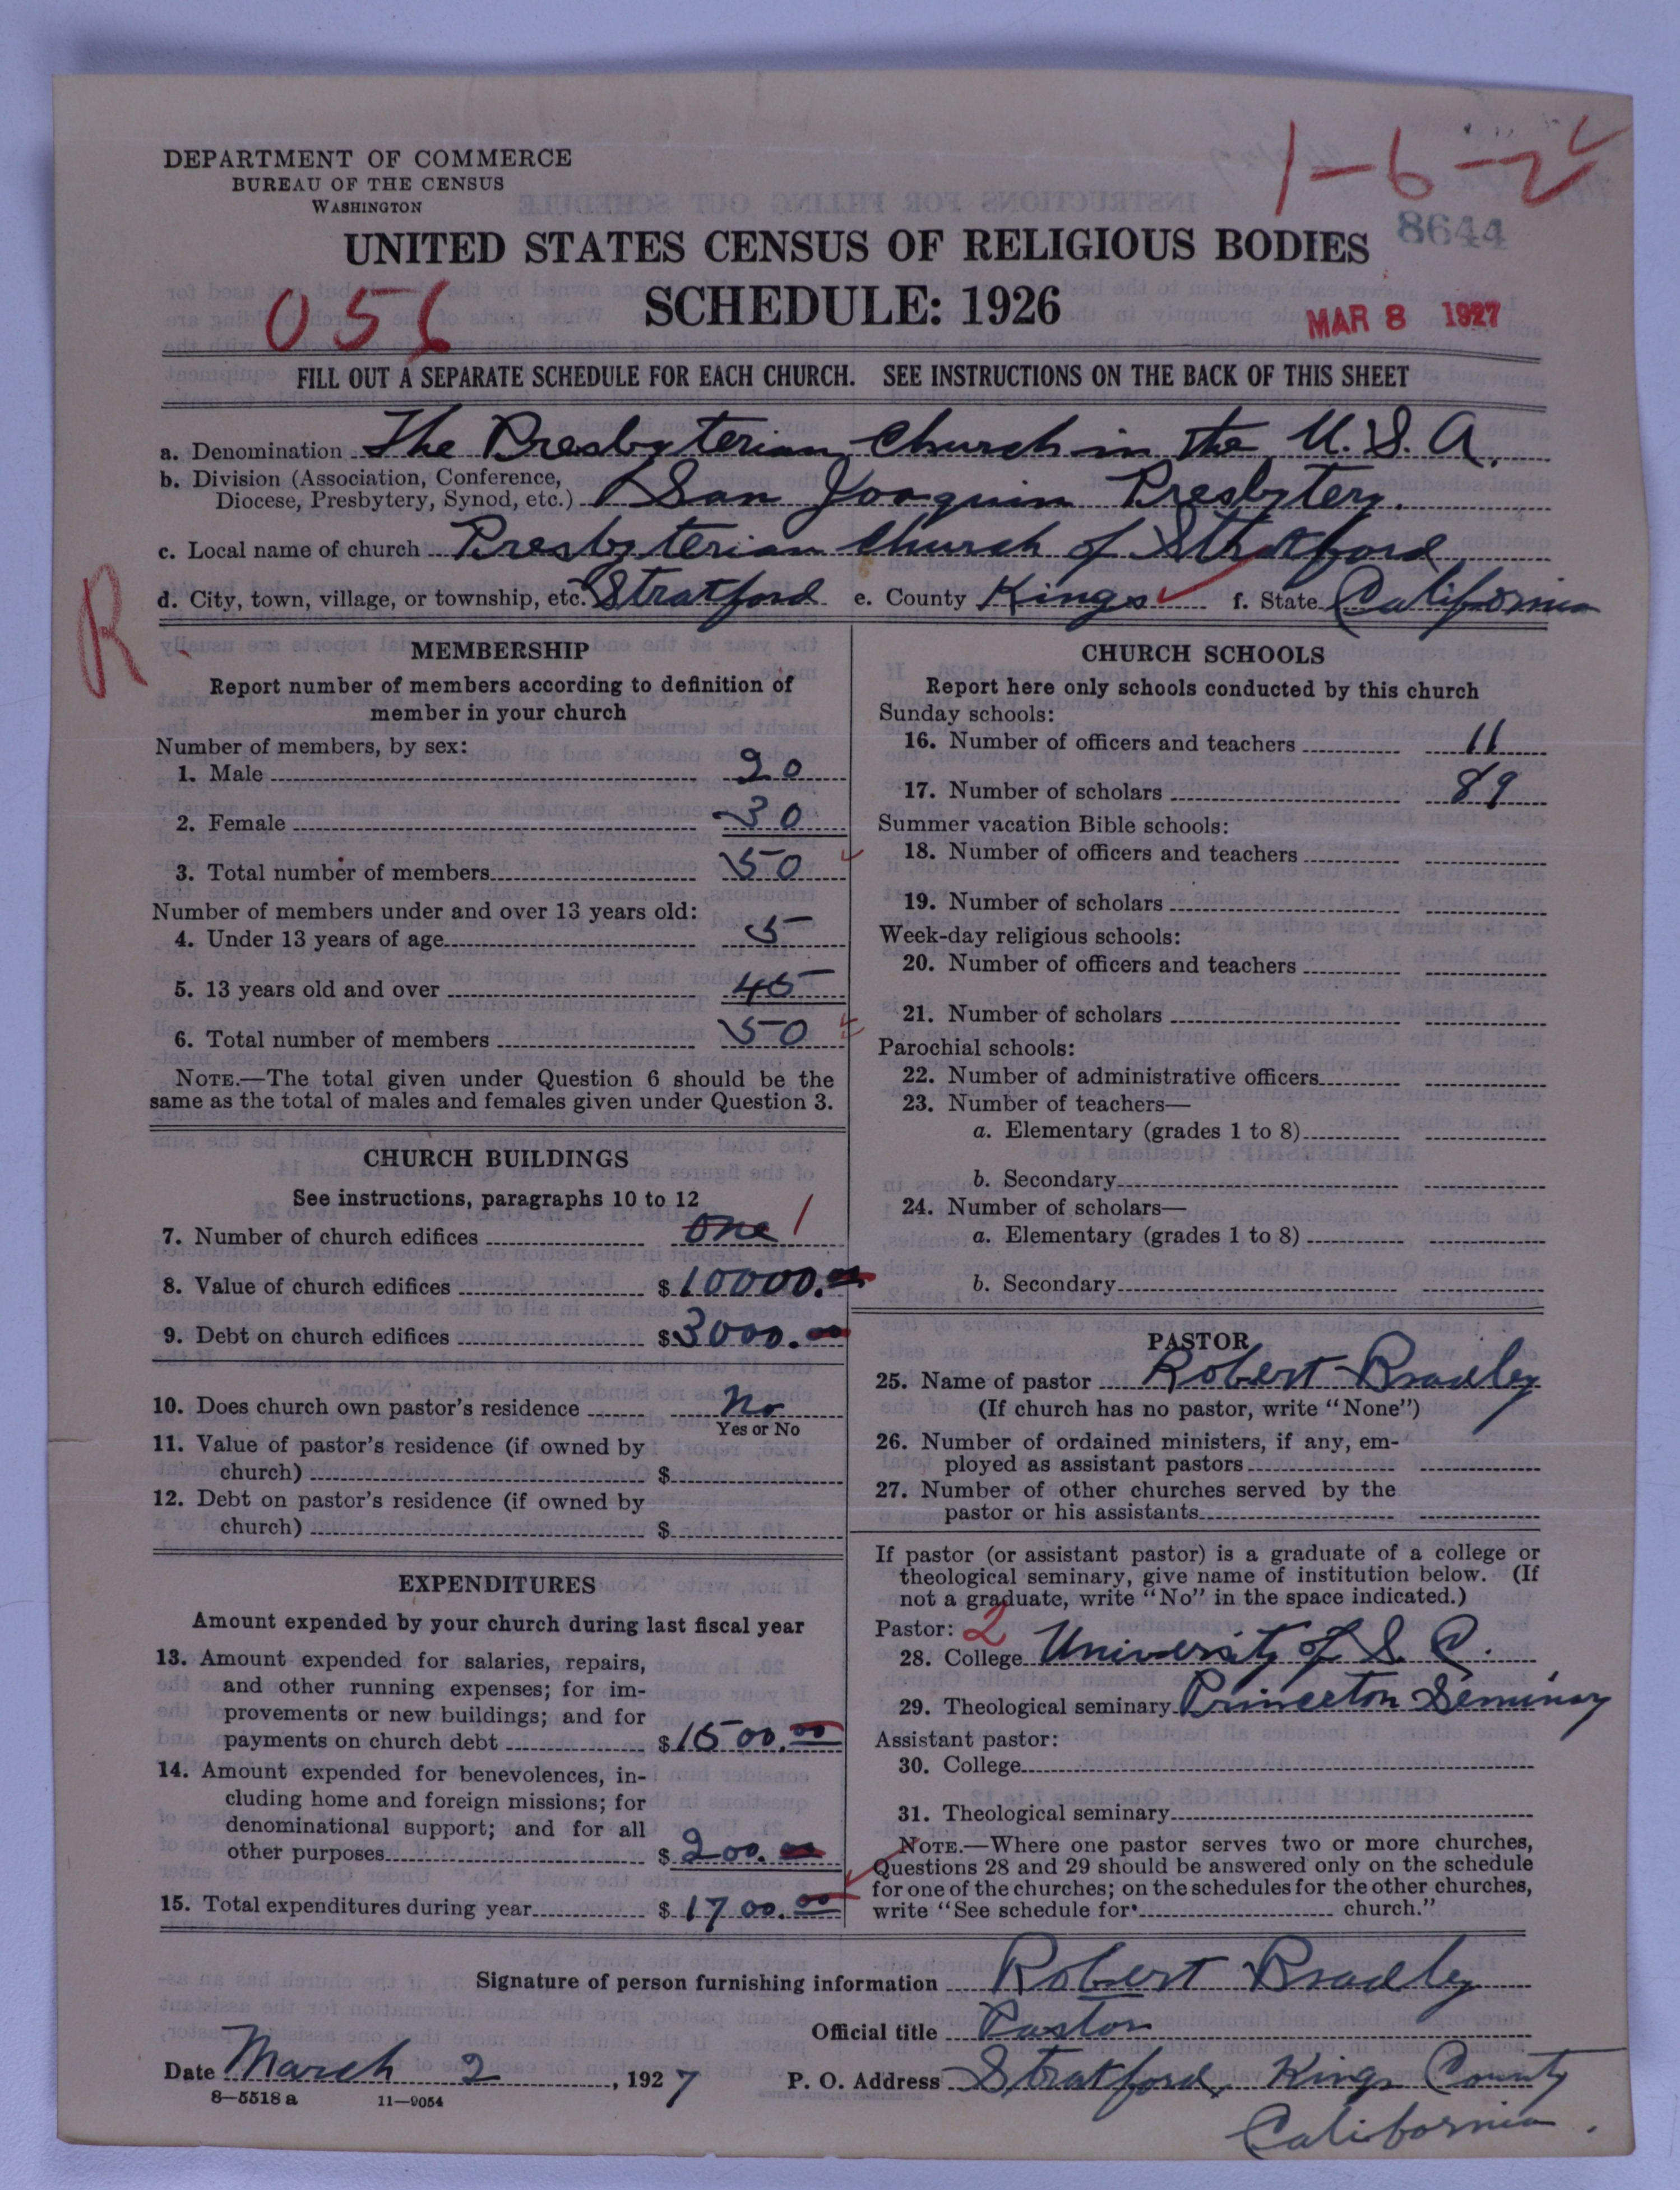 1-6-2
DEPARTMENT OF COMMERCE
BUREAU OF THE CENSUS
WASHINGTON
8644
UNITED STATES CENSUS OF RELIGIOUS BODIES
SCHEDULE: 1926
056
MAR 8 1927
FILL OUT A SEPARATE SCHEDULE FOR EACH CHURCH. SEE INSTRUCTIONS ON THE BACK OF THIS SHEET
a. Denomination The Presbyterian Church in the U. S. A.
b. Division (Association, Conference,
Diocese, Presbytery, Synod, etc.) San Joaquin Presbytery.
c. Local name of church Presbyterian Church of Stratford
R
d. City, town, village, or township, etc. Stratford e. County Kings f. State California
MEMBERSHIP
Report number of members according to definition of
member in your church
Number of members, by sex:
1. Male 20
2. Female 30
3. Total number of members 50
Number of members under and over 13 years old:
4. Under 13 years of age 5
5. 13 years old and over 45
6. Total number of members 50
NOTE.—The total given under Question 6 should be the
same as the total of males and females given under Question 3.
CHURCH BUILDINGS
See instructions, paragraphs 10 to 12
7. Number of church edifices One 1
8. Value of church edifices $10000.00
9. Debt on church edifices $3000.00
10. Does church own pastor's residence No
Yes or No
11. Value of pastor's residence (if owned by
church) $
12. Debt on pastor's residence (if owned by
church) $
EXPENDITURES
Amount expended by your church during last fiscal year
13. Amount expended for salaries, repairs,
and other running expenses; for im-
provements or new buildings; and for
payments on church debt $1500.00
14. Amount expended for benevolences, in-
cluding home and foreign missions; for
denominational support; and for all
other purposes $200.00
15. Total expenditures during year $1700.00
CHURCH SCHOOLS
Report here only schools conducted by this church
Sunday schools:
16. Number of officers and teachers 11
17. Number of scholars 89
Summer vacation Bible schools:
18. Number of officers and teachers
19. Number of scholars
Week-day religious schools:
20. Number of officers and teachers
21. Number of scholars
Parochial schools:
22. Number of administrative officers
23. Number of teachers—
a. Elementary (grades 1 to 8)
b. Secondary
24. Number of scholars—
a. Elementary (grades 1 to 8)
b. Secondary
PASTOR
25. Name of pastor Robert Bradley
(If church has no pastor, write "None")
26. Number of ordained ministers, if any, em-
ployed as assistant pastors
27. Number of other churches served by the
pastor or his assistants
If pastor (or assistant pastor) is a graduate of a college or
theological seminary, give name of institution below. (If
not a graduate, write "No" in the space indicated.)
Pastor: 2
28. College University of S. C.
29. Theological seminary Princeton Seminary
Assistant pastor:
30. College
31. Theological seminary
NOTE.—Where one pastor serves two or more churches,
Questions 28 and 29 should be answered only on the schedule
for one of the churches; on the schedules for the other churches,
write "See schedule for church."
Signature of person furnishing information Robert Bradley
Official title Pastor
Date March 2, 1927 P. O. Address Stratford, Kings County
8—5518 a 11—9054
California.